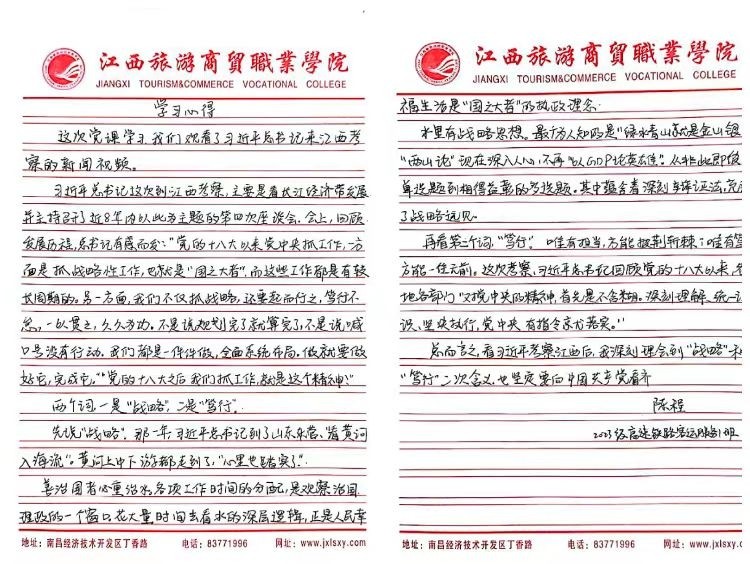 江西旅游商贸職業學院
JIANGXI TOURISM&COMMERCE VOCATIONAL COLLEGE
学习心得
这次党课学习,我们观看了习近平总书记来江西考
察的新闻视频。
习近平总书记这次到江西考察,主要是看长江经济带发展
并主持召开了近8年内以此为主题的第四次座谈会。会上,回顾
发展历程,总书记有感而发:“党的十八大以来党中央抓工作,一方
面是抓战略性工作,也就是“国之大者”,而这些工作都是有较
长周期的。另一方面,我们不仅抓战略,还要起而行之,笃行不
怠,一以贯之,久久为功。不是说规划完了就算完了,不是说喊
口号没有行动。我们都是一件件做,全面系统布局。做就要做
好它,完成它。”“党的十八大之后我们抓工作,就是这个精神!”
两个词,一是“战略”,二是“笃行”。
先说“战略”。那一年,习近平总书记到了山东东营、看“黄河
入海流”。黄河上中下游都走到了,“心里也踏实了”。
善治国者必重治水,各项工作时间的分配,是观察治国
理政的一个窗口,花大量时间去看水的深层逻辑,正是人民幸
地址:南昌经济技术开发区丁香路 电话:83771996 网址:www.jxlsxy.com
江西旅游商貿職業學院
JIANGXI TOURISM&COMMERCE VOCATIONAL COLLEGE
福生活是“国之大者”的执政理念。
水里有战略思想。最广为人知的是“绿水青山就是金山银
“两山论”现在深入人心,不再“以GDP论英雄”。从非此即彼
单选题到相得益彰的多选题。其中蕴含着深刻辩证法,充
了战略远见。
再看第二个词,“笃行”。唯有担当,方能披荆斩棘;唯有笃
方能一往无前。这次考察,习近平总书记回顾党的十八大以来,各
地各部门“对党中央的精神,首先是不含糊。深刻理解、统一
识、坚决执行,党中央有指令就落实。”
总而言之,看习近平考察江西后,我深刻理会到“战略”和
“笃行”二次含义,也坚定要向中国共产党看齐
陈程
2023级
班
地址:南昌经济技术开发区丁香路 电话:83771996 网址:www.jxlsxy.com